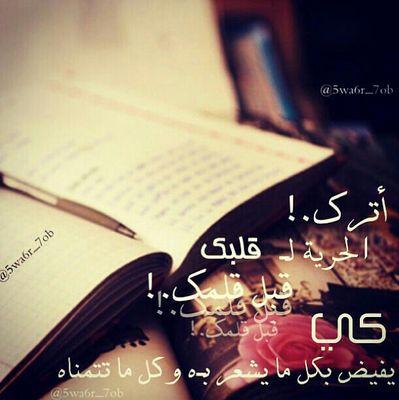 @5wa6r_7ob
أترك.!
الحرية لـ قلبك
@5wa6r_7ob
قبل قلمك.!
قبل قلمك.!
قبل قلمك.!
كي
يفيض بكل ما يشعر به وكل ما تتمناه
@5wa6r_7ob